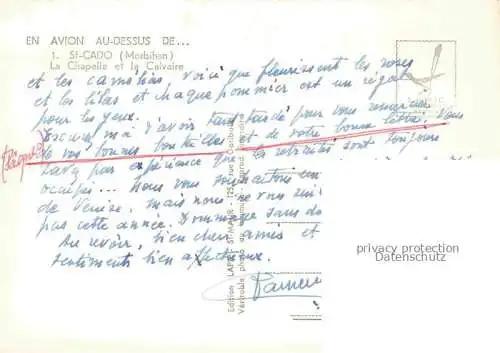 EN AVION AU-DESSUS DE...
1. St-CADO (Morbihan)
La Chapelle et le Calvaire
et les camélias, voici que fleurissent les roses
et les lilas et chaque pommier est un régal
pour les yeux.
Excusez moi d'avoir tant tardé pour vous remercier
(Pâques)
de vos bonnes et de votre bonne lettre. Vous
savez par expérience que les retraités sont toujours
occupés... Nous vous souhaitons un
de Venise, mais nous ne vous
pas cette année. Dommage sans
Au revoir, bien chers amis et
sentiments bien affectueux.
Edition LAPIE, ST-MAUR
Véritable photo au bromure
privacy protection
Datenschutz